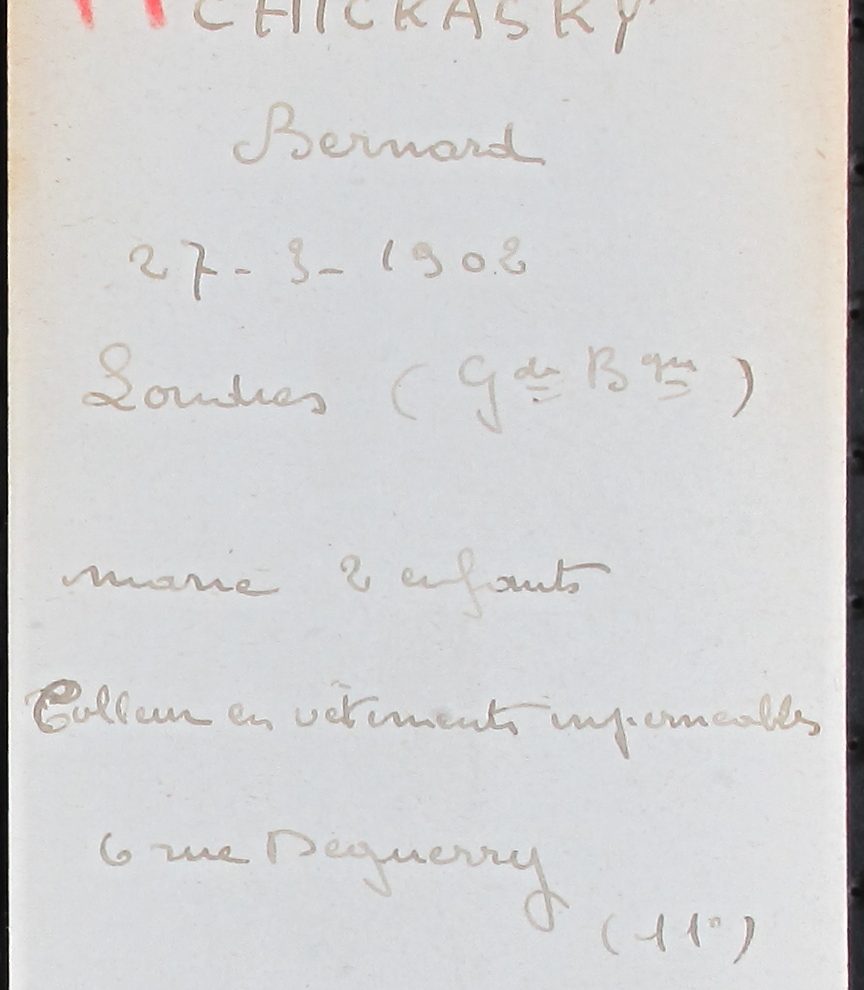 CHICKASKY
Bernard
27-3-1902
Londres (Gde Bgne)
marié 2 enfants
Colleur en vêtements imperméables
6 rue Deguerry
(11e)